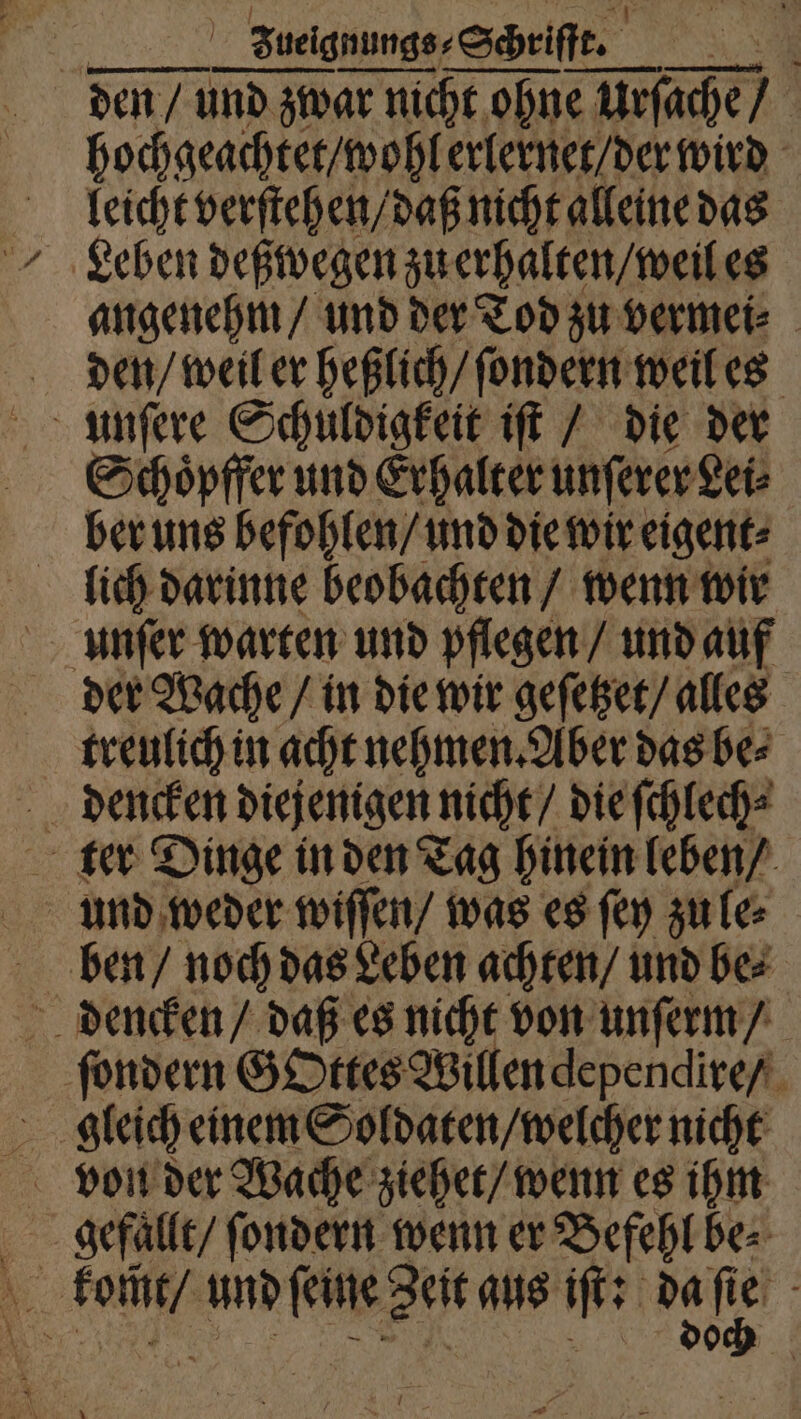 Zueignungs⸗Schrifft.
den / und zwar nicht ohne Urſache /
hochgeachtet/wohl erlernet/der wird
leicht verſtehen/daß nicht alleine das
Leben deßwegen zu erhalten/weil es
angenehm / und der Tod zu vermei⸗
den/ weil er heßlich/ ſondern weil es
unſere Schuldigkeit iſt / die der
Schoͤpffer und Erhalter unſerer Lei⸗
ber uns befohlen/ und die wir eigent⸗
lich darinne beobachten / wenn wir
unſer warten und pflegen / und auf
der Wache / in die wir geſetzet/ alles
treulich in acht nehmen. Aber das be⸗
dencken diejenigen nicht / die ſchlech⸗
ter Dinge in den Tag hinein leben/
und weder wiſſen/ was es ſey zu le⸗
ben / noch das Leben achten/ und be⸗
dencken / daß es nicht von unſerm /
ſondern GOttes Willen dependire/
gleich einem Soldaten/welcher nicht
von der Wache ziehet/ wenn es ihm
gefaͤllt/ ſondern wenn er Befehl be⸗
kom̃t/ und ſeine Zeit aus iſt: da ſie
doch